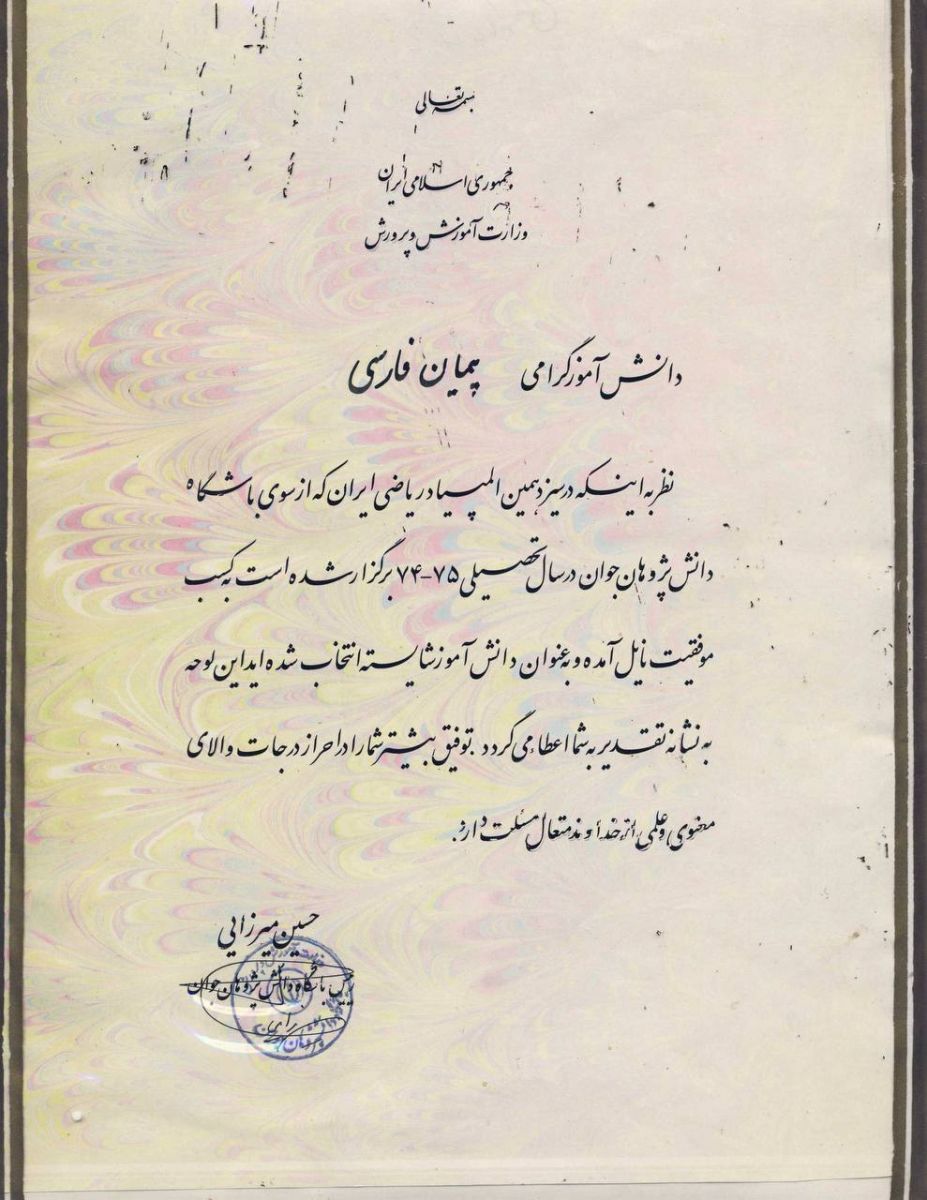 بسمه تعالی
جمهوری اسلامی ایران
وزارت آموزش و پرورش
دانش آموز گرامی پیمان فارسی
نظر به اینکه در سیزدهمین المپیاد ریاضی ایران که از سوی باشگاه
دانش پژوهان جوان در سال تحصیلی ۷۵-۷۴ برگزار شده است به کسب
موفقیت نایل آمده و به عنوان دانش آموز شایسته انتخاب شده اید این لوحه
به نشانه تقدیر به شما اعطاء می گردد. توفیق بیشتر شما را در احراز درجات والای
معنوی و علمی از خداوند متعال مسئلت دارد.
حسین میرزایی
رئیس باشگاه دانش پژوهان جوان